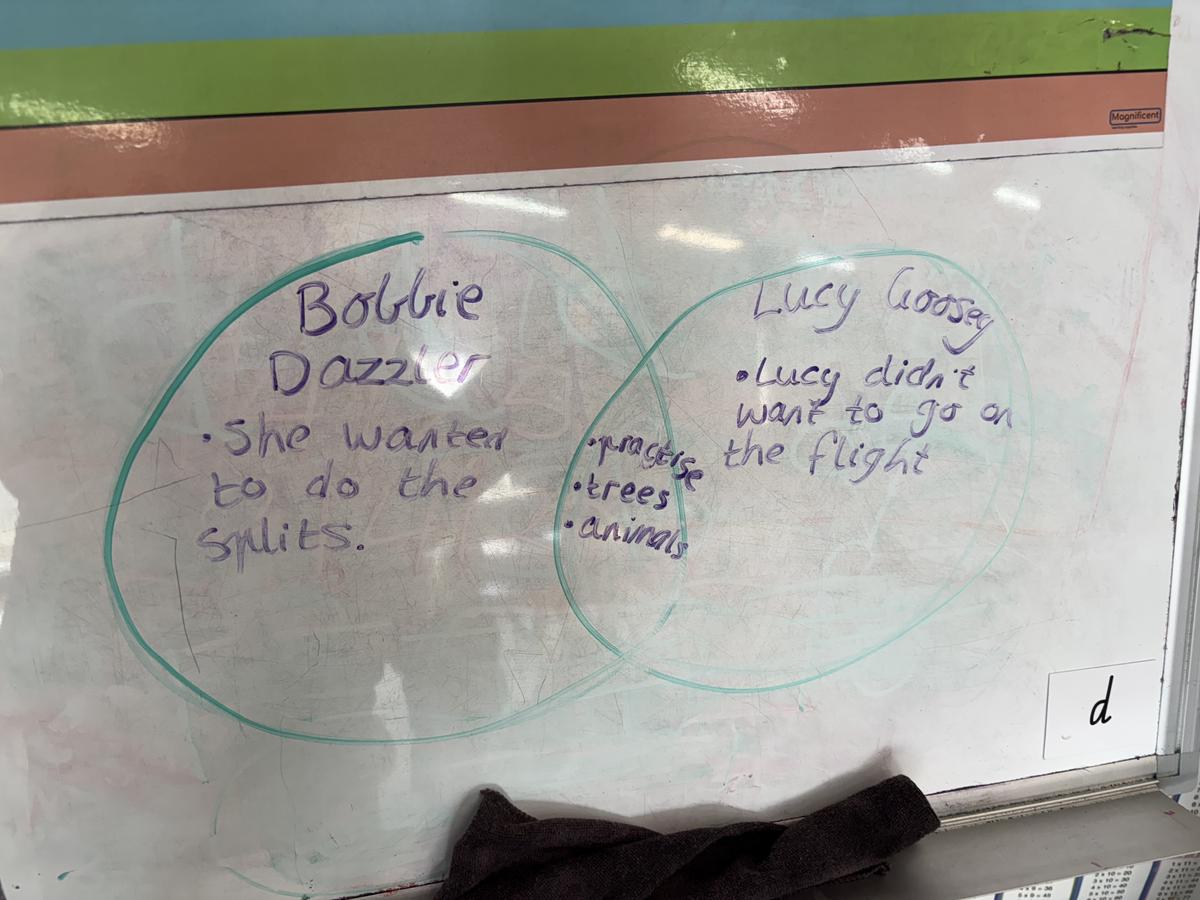 Magnificent
Bobbie
Dazzler
• She wanted
to do the
splits.
• practise
• trees
• animals
Lucy Goosey
• Lucy didn't
want to go on
the flight
d
2 x 10 = 20
3 x 10 = 30
4 x 10 = 40